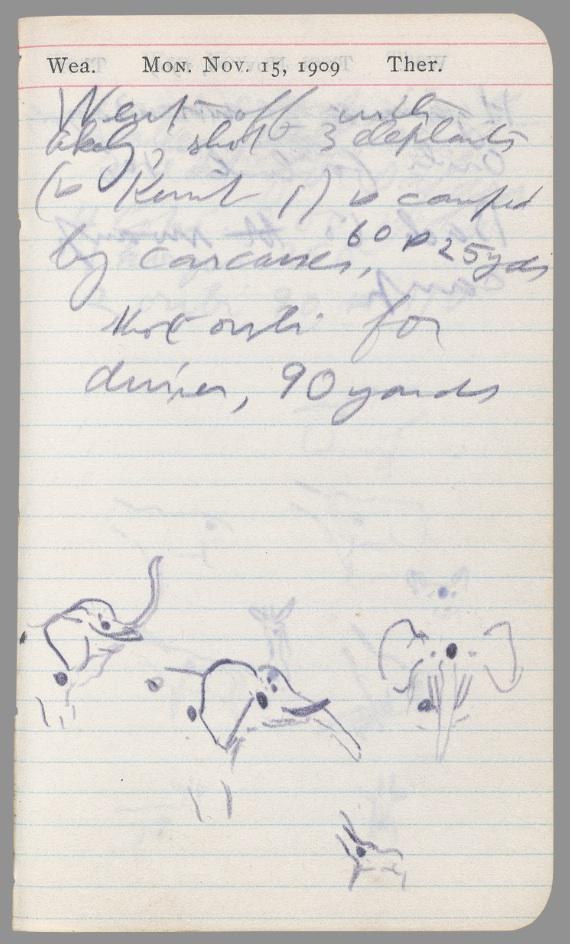 Wea. Mon. Nov. 15, 1909 Ther.
Went off with
Akely; shot 3 elephants
(& Kermit 1) & camped
by carcasses, 60 & 25 yds
shot oribi for
dinner, 90 yards